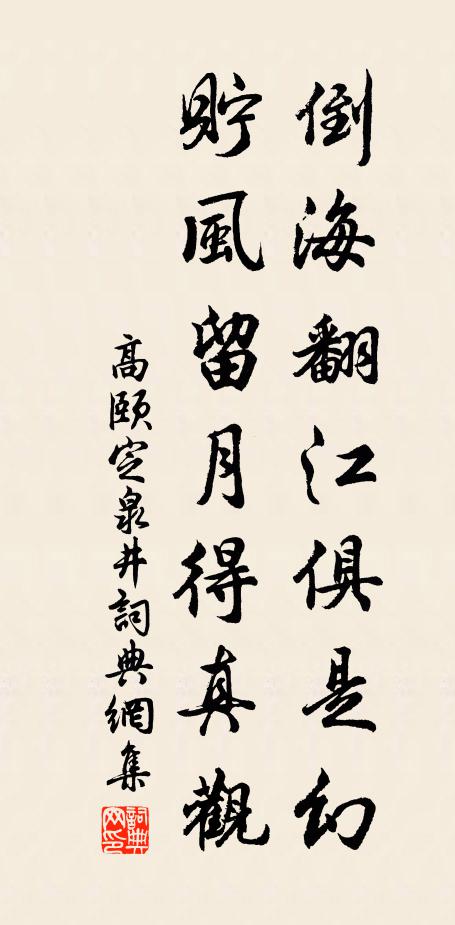 倒海翻江俱是幻
貯風留月得真觀
高頤定泉井詞典網集
詞典网印